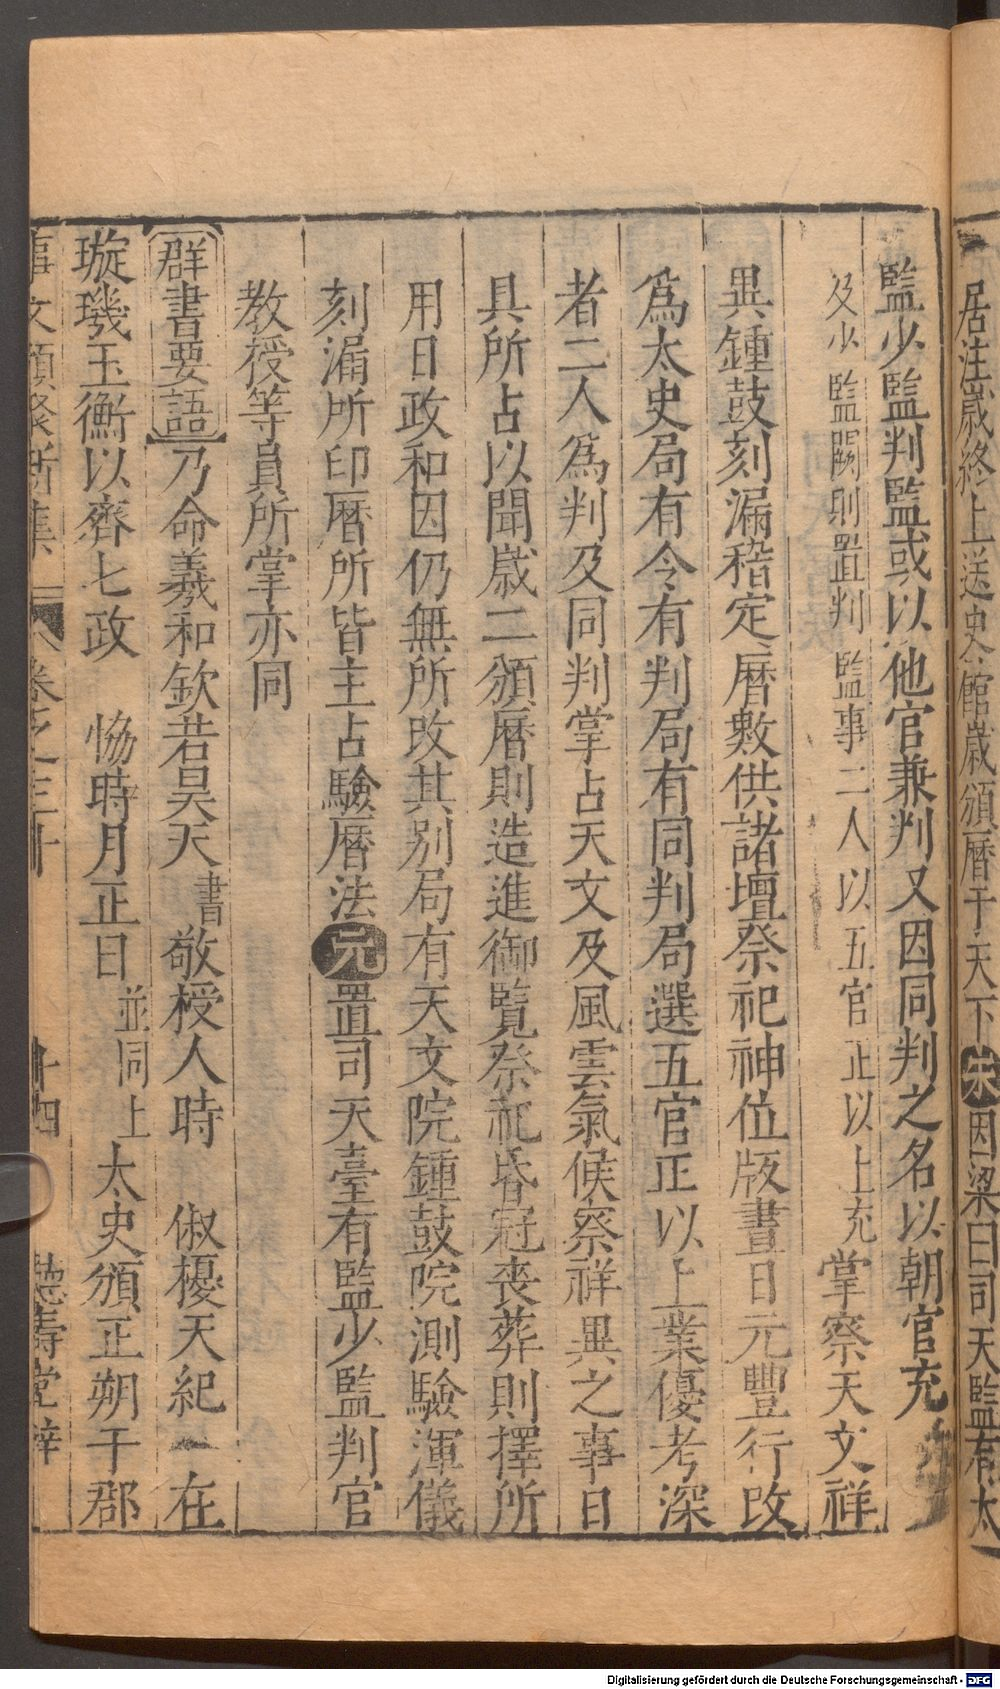 居注歲終上送史館歲頒曆于天下宋因梁曰司天監有太
監少監判監或以他官兼判又因同判之名以朝官充
及少監闕則置判監事二人以五官正以上充掌察天文祥
異鍾鼓刻漏稽定曆數供諸壇祭祀神位版畫日元豐行改
爲太史局有令有判局有同判局選五官正以上業優考深
者二人爲判及同判掌占天文及風雲氣候察祥異之事日
具所占以聞歲二頒曆則造進御覽祭祀昏冠喪葬則擇所
用日政和因仍無所改其別局有天文院鍾鼓院測驗渾儀
刻漏所印曆所皆主占驗曆法元置司天臺有監少監判官
教授等員所掌亦同
群書要語乃命羲和欽若昊天書敬授人時 俶擾天紀 在
璇璣玉衡以齊七政 恊時月正日並同上太史頒正朔于郡
事文類聚新集 卷之三十 十四 德壽堂梓
Digitalisierung gefördert durch die Deutsche Forschungsgemeinschaft - DFG